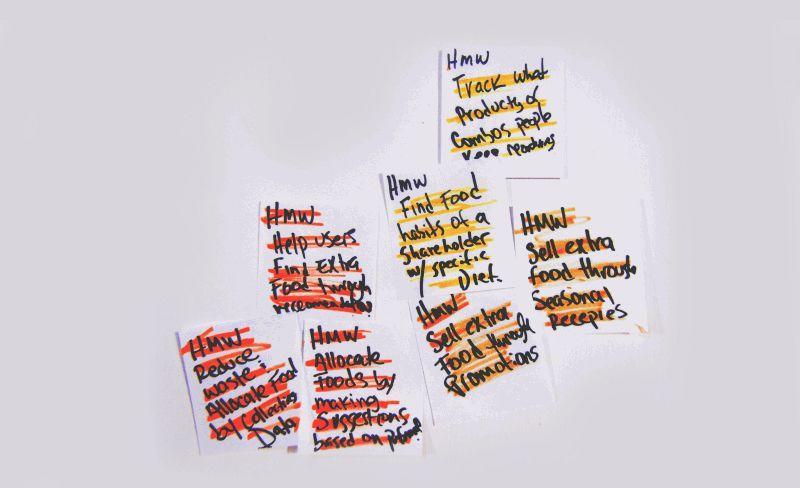 HMW
Track what
Products or
Combos people
Keep
HMW
Find Food
habits of a
Shareholder
w/ specific
Diet.
HMW
Help users
Find Extra
Food through
HMW
Sell extra
food through
Seasonal
Recepies
HMW
Sell extra
Food through
Promotions
HMW
Reduce
waste:
Allocate Food
by Collecting
Data
HMW
Allocate
Foods by
making
Suggestions
based on